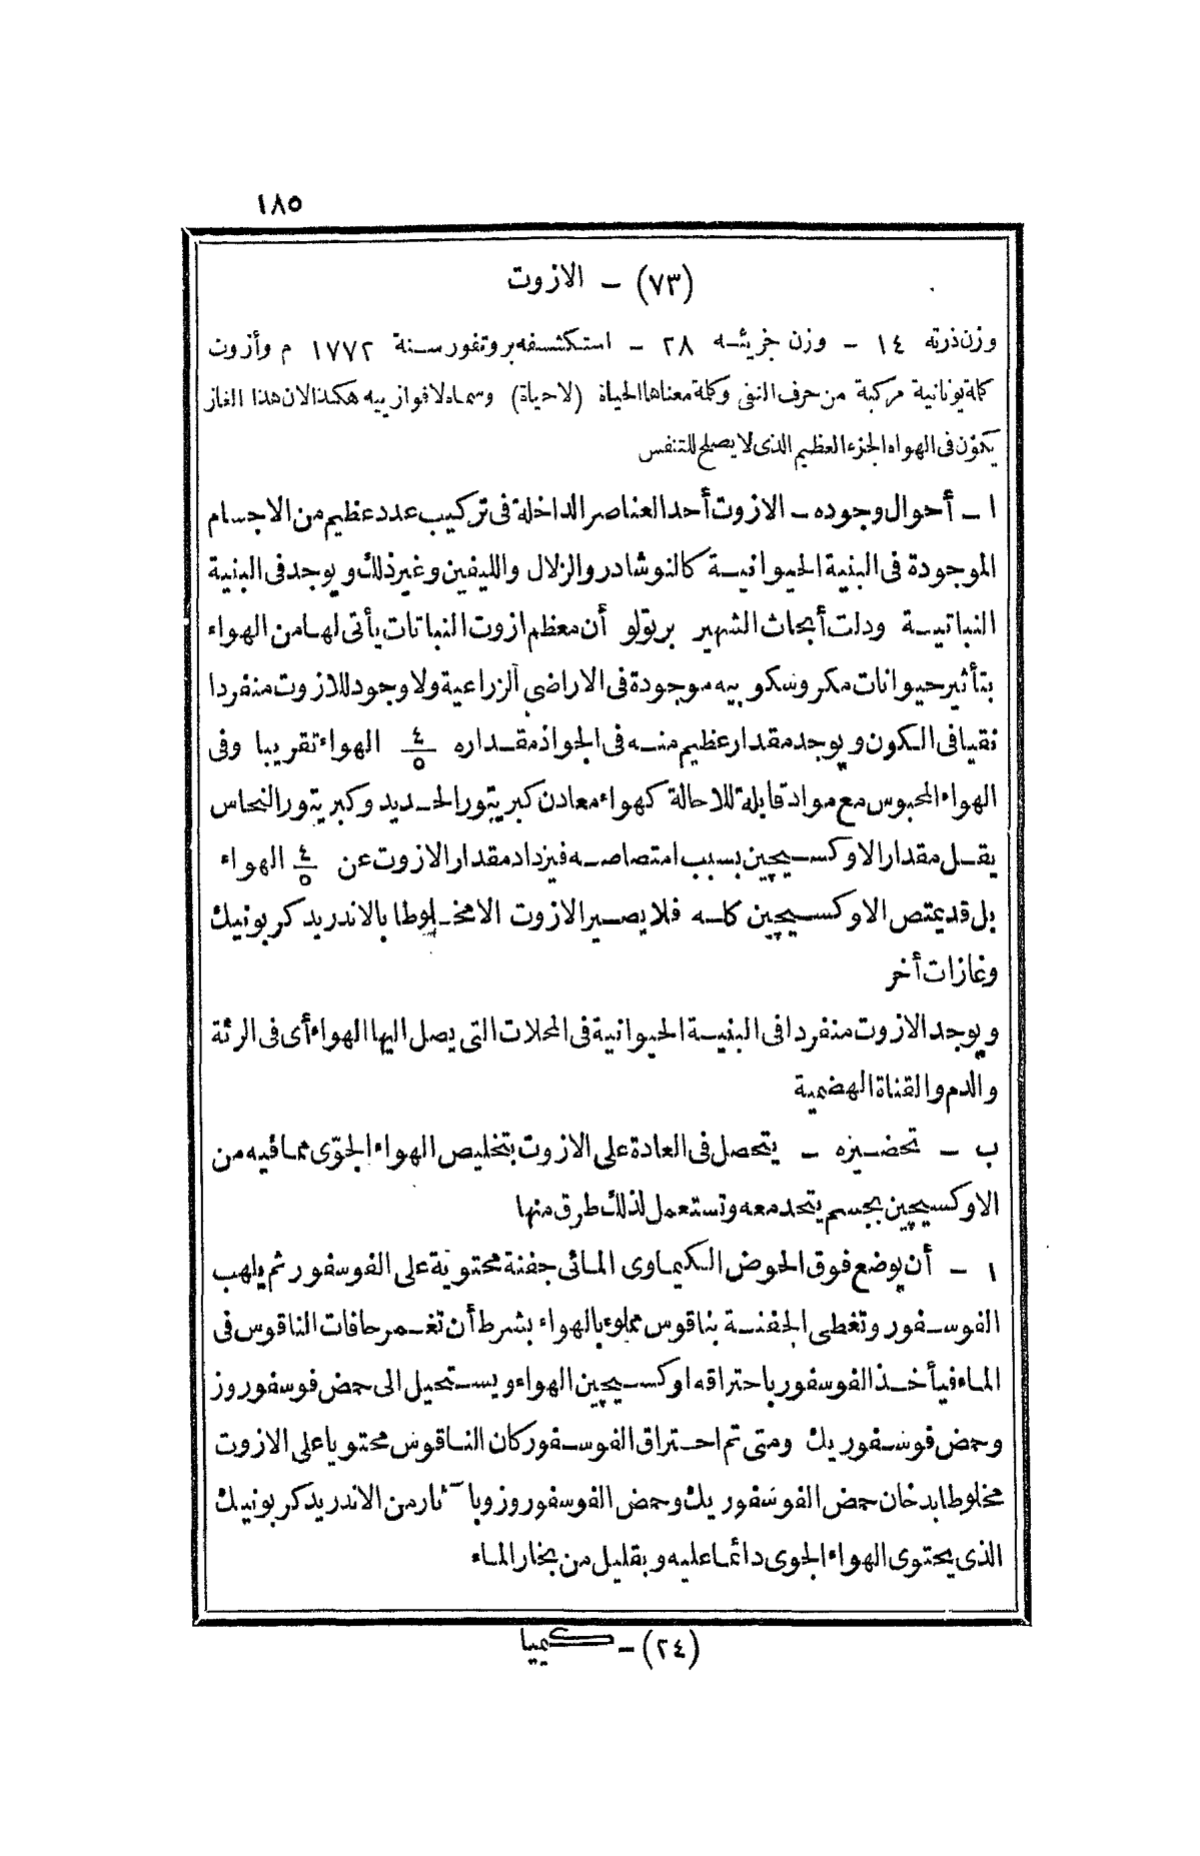 ١٨٥
(٧٣) - الازوت
وزن ذرته ١٤ - وزن جزيئه ٢٨ - استكشفه بروتفور سنة ١٧٧٢ م وأزوت
كلمة يونانية مركبة من حرف النفى وكلمة معناها الحياة (لا حياة) وسماه لافوازييه هكذا لان هذا الغاز
يكوّن فى الهواء الجزء العظيم الذى لا يصلح للتنفس
ا - أحوال وجوده - الازوت أحد العناصر الداخلة فى تركيب عدد عظيم من الاجسام
الموجودة فى البنية الحيوانية كالنوشادر والزلال والليفين وغير ذلك ويوجد فى البنية
النباتية ودلت أبحاث الشهير برتولو أن معظم ازوت النباتات يأتى لها من الهواء
بتأثير حيوانات مكروسكوبيه موجودة فى الاراضى الزراعية ولا وجود للازوت منفردا
نقيا فى الكون ويوجد مقدار عظيم منه فى الجو اذ مقداره ٤/٥ الهواء تقريبا وفى
الهواء المحبوس مع مواد قابلة للاحالة كهواء معادن كبريتور الحديد وكبريتور النحاس
يقل مقدار الاوكسيچين بسبب امتصاصه فيزداد مقدار الازوت عن ٤/٥ الهواء
بل قد يمتص الاوكسيچين كله فلا يصير الازوت الا مخلوطا بالاندريد كربونيك
وغازات أخر
ويوجد الازوت منفردا فى البنية الحيوانية فى المحلات التى يصل اليها الهواء أى فى الرئة
والدم والقناة الهضمية
ب - تحضيره - يتحصل فى العادة على الازوت بتخليص الهواء الجوّى مما فيه من
الاوكسيچين بجسم يتحد معه وتستعمل لذلك طرق منها
١ - أن يوضع فوق الحوض الكيماوى المائى جفنة محتوية على الفوسفور ثم يلهب
الفوسفور وتغطى الجفنة بناقوس مملوء بالهواء بشرط أن تغمر حافات الناقوس فى
الماء فيأخذ الفوسفور باحتراقه اوكسيچين الهواء ويستحيل الى حمض فوسفوروز
وحمض فوسفوريك ومتى تم احتراق الفوسفور كان الناقوس محتويا على الازوت
مخلوطا بدخان حمض الفوسفوريك وحمض الفوسفوروز وبآثار من الاندريد كربونيك
الذى يحتوى الهواء الجوى دائما عليه وبقليل من بخار الماء
(٢٤) - كيميا